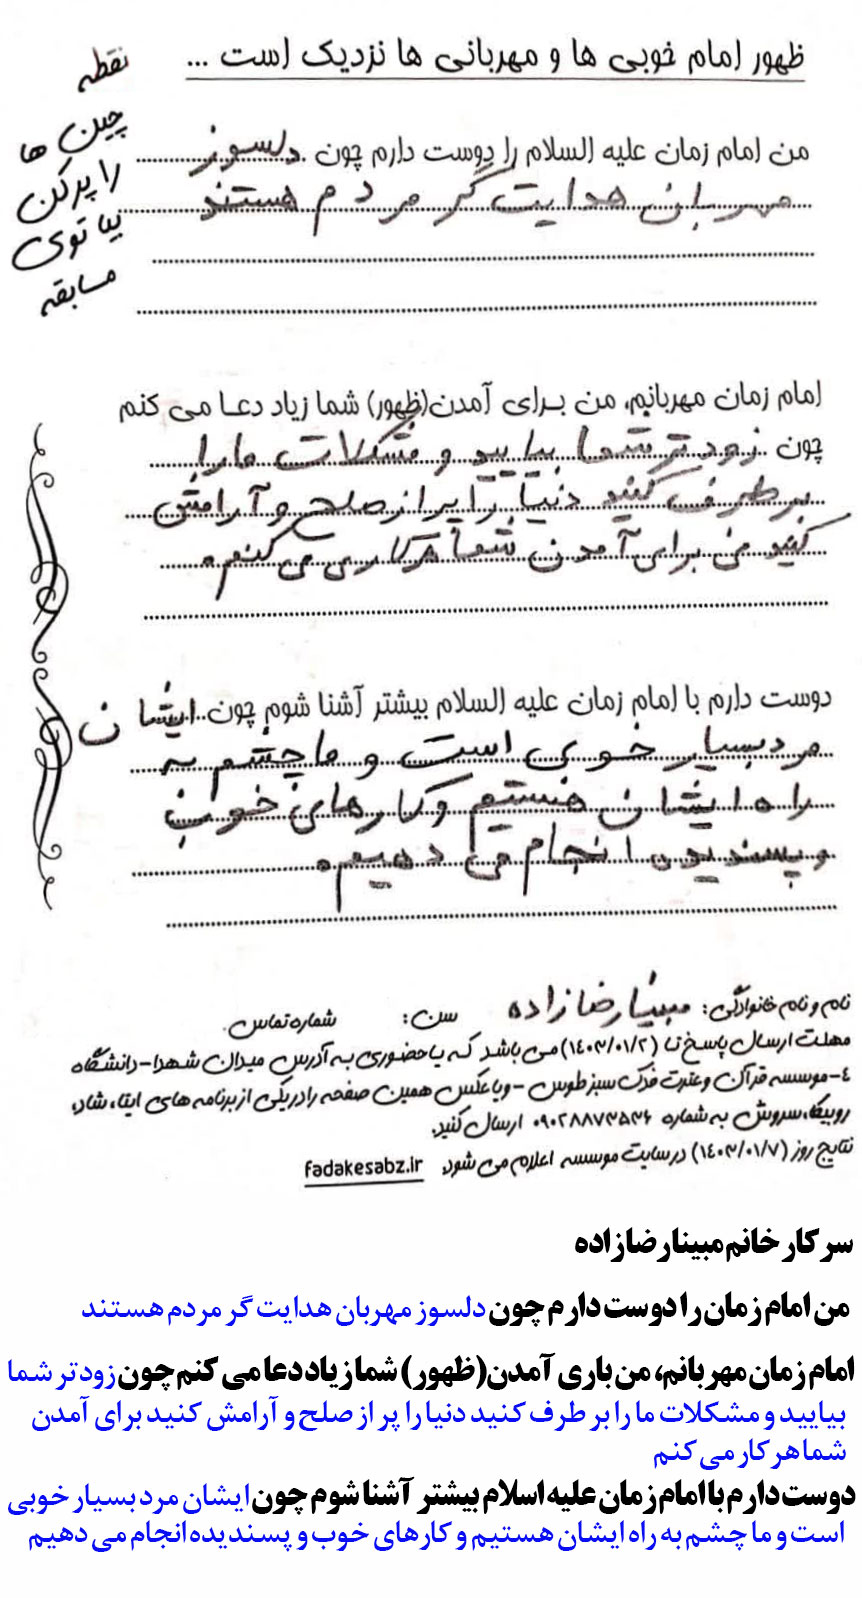 ظهور امام خوبی ها و مهربانی ها نزدیک است ...
نقطه
چین ها
را پر کن
بیا توی
مسابقه
من امام زمان علیه السلام را دوست دارم چون دلسوز
مهربان هدایت گر مردم هستند
امام زمان مهربانم، من برای آمدن(ظهور) شما زیاد دعا می کنم
چون زود تر شما بیایید و مشکلات ما را
بر طرف کنید دنیا را پر از صلح و آرامش
کنید من برای آمدن شما هر کاری می کنم.
دوست دارم با امام زمان علیه السلام بیشتر آشنا شوم چون ایشان
مرد بسیار خوبی است و ما چشم به
راه ایشان هستیم و کارهای خوب
و پسندیده انجام می دهیم.
نام و نام خانوادگی: مبینا رضازاده سن: شماره تماس:
مهلت ارسال پاسخ تا (۱۴۰۳/۰۱/۲) می باشد که یا حضوری به آدرس میدان شهدا-دانشگاه
۴-موسسه قرآن و عترت فدک سبز طوس - و یا عکس همین صفحه را در یکی از برنامه های ایتا، شاد،
روبیکا، سروش به شماره ۰۹۰۲۸۸۷۳۵۳۶ ارسال کنید.
نتایج روز (۱۴۰۳/۰۱/۷) در سایت موسسه اعلام می شود. fadakesabz.ir
سرکار خانم مبینا رضازاده
من امام زمان را دوست دارم چون دلسوز مهربان هدایت گر مردم هستند
امام زمان مهربانم، من باری آمدن(ظهور) شما زیاد دعا می کنم چون زود تر شما
بیایید و مشکلات ما را بر طرف کنید دنیا را پر از صلح و آرامش کنید برای آمدن
شما هر کار می کنم
دوست دارم با امام زمان علیه اسلام بیشتر آشنا شوم چون ایشان مرد بسیار خوبی
است و ما چشم به راه ایشان هستیم و کارهای خوب و پسندیده انجام می دهیم